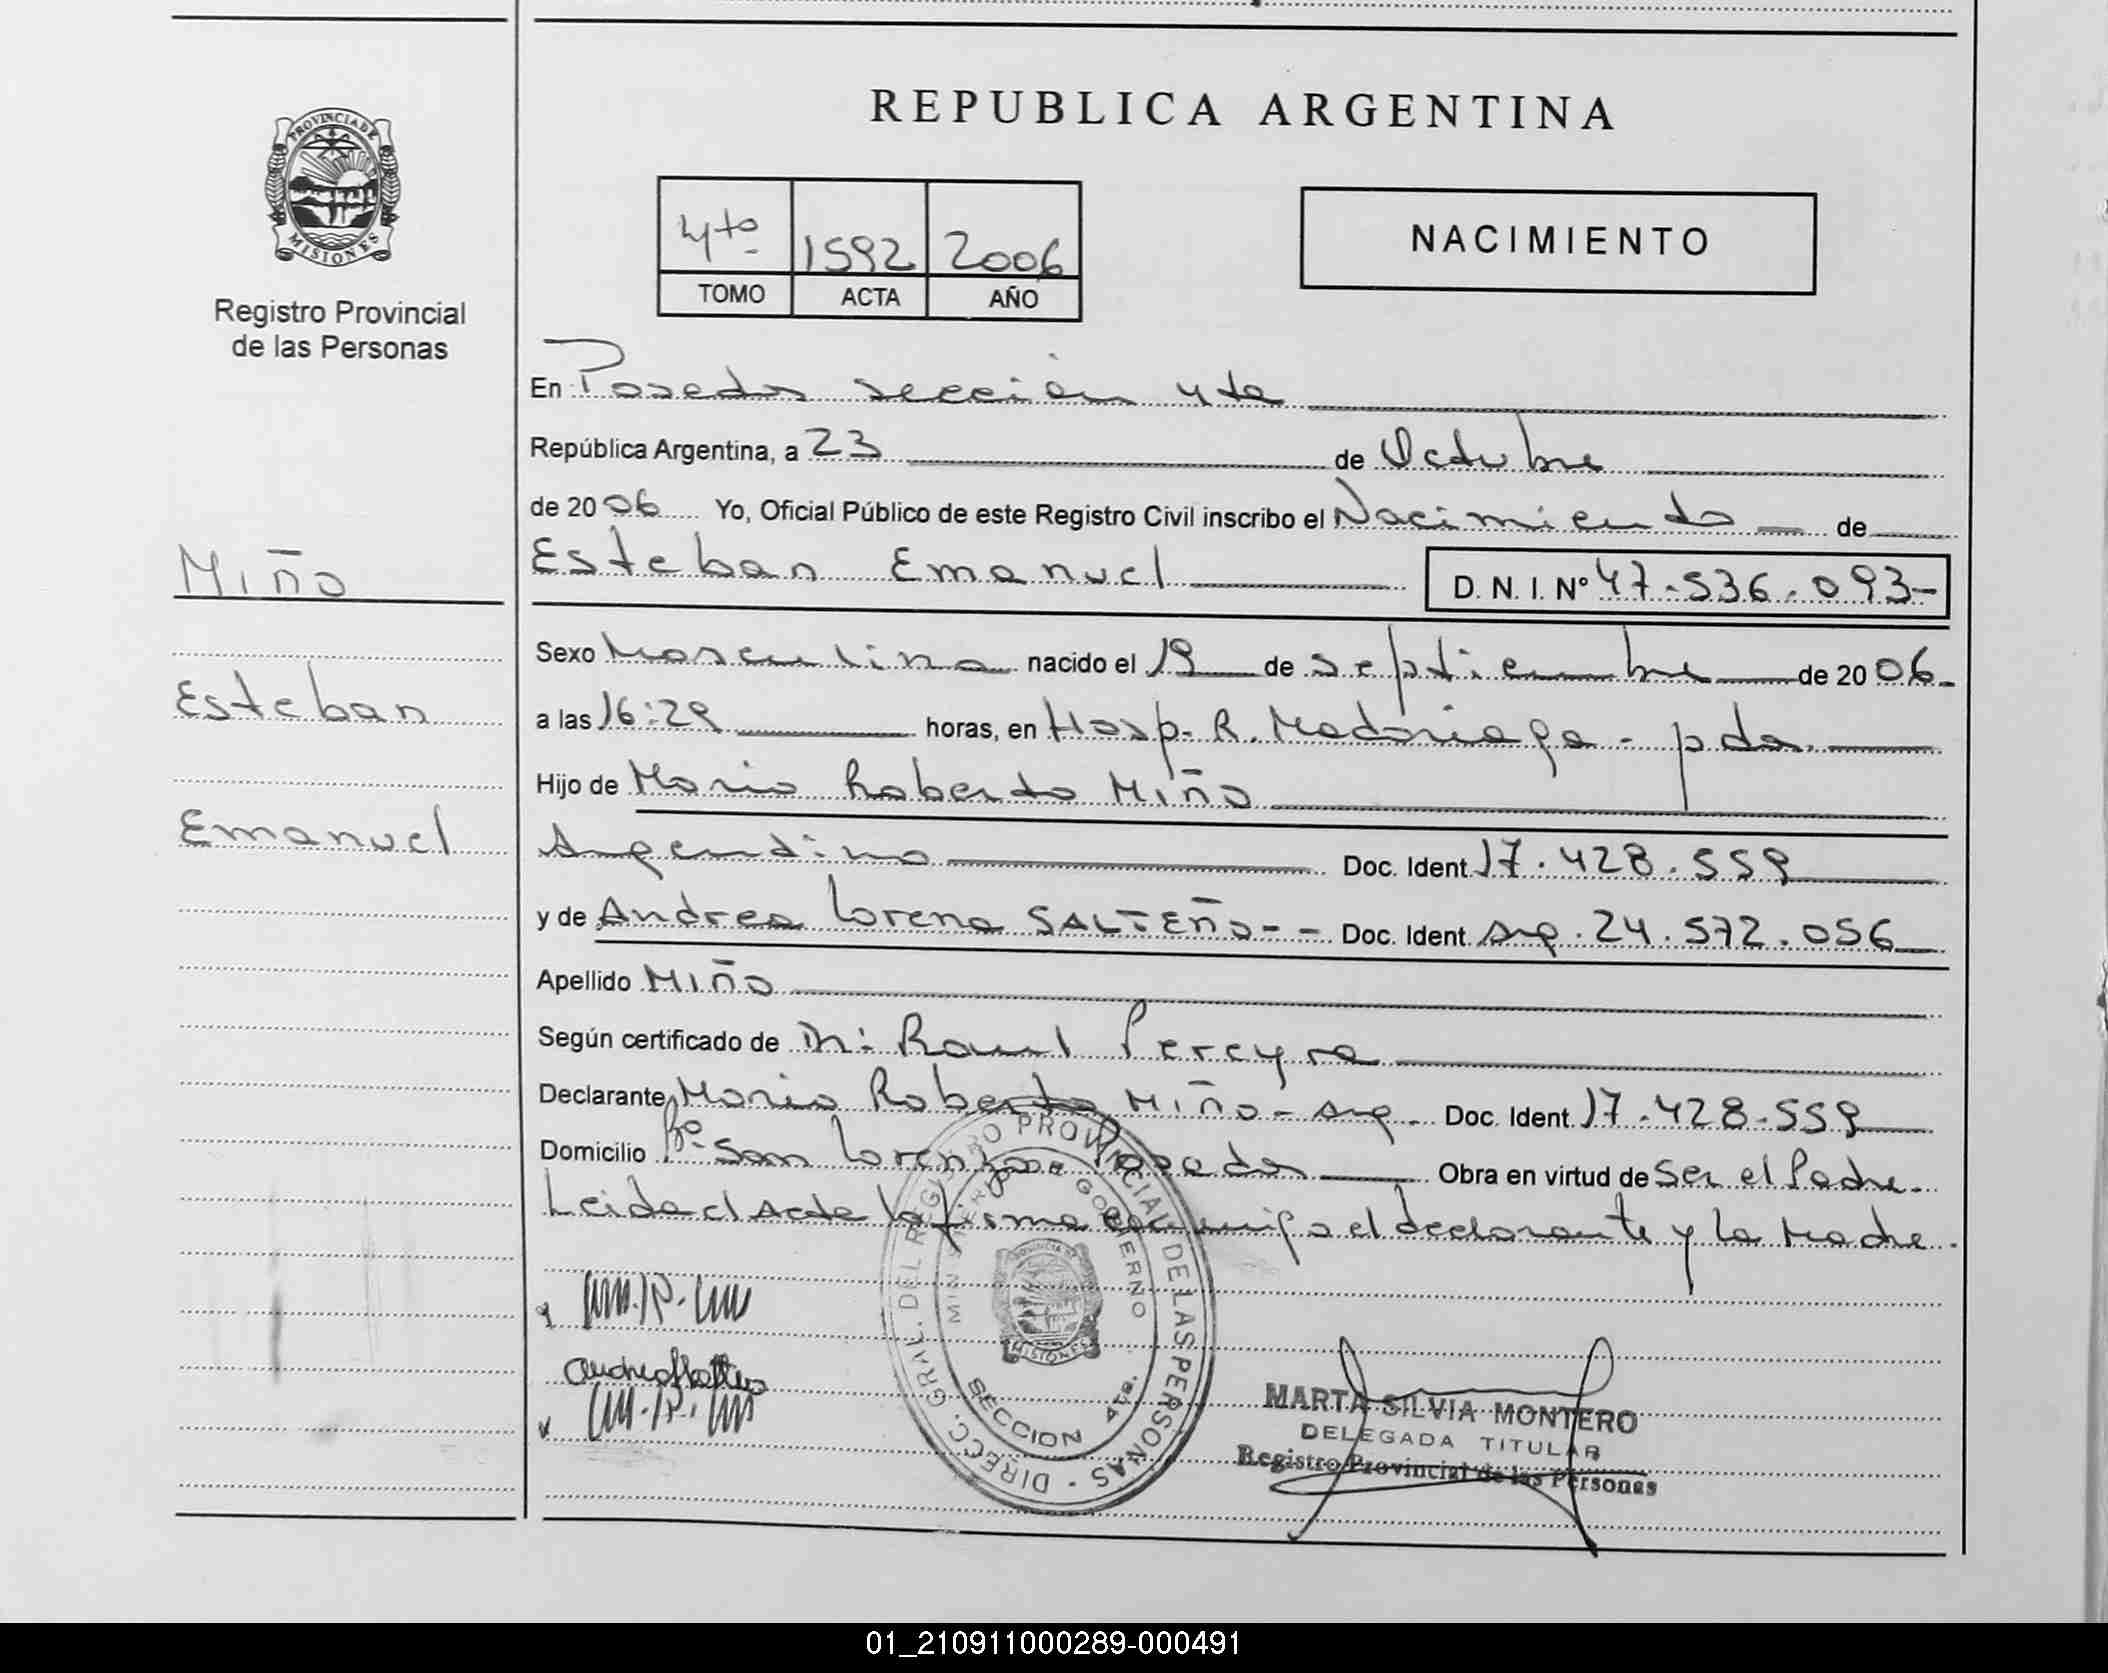 REPUBLICA ARGENTINA
PROVINCIA DE
MISIONES
Registro Provincial
de las Personas
4to 1592 2006
TOMO ACTA AÑO
NACIMIENTO
En Posadas sección 4ta
República Argentina, a 23 de Octubre
de 2006 Yo, Oficial Público de este Registro Civil inscribo el Nacimiento de
Miño
Esteban Emanuel D. N. I. Nº 47.536.093-
Sexo Masculino nacido el 19 de septiembre de 2006.
Esteban
a las 16:29 horas, en Hosp. R. Madariaga - pdas.
Hijo de Mario Roberto Miño
Emanuel
Argentino Doc. Ident. 17.428.559
y de Andrea Lorena SALTEÑO-- Doc. Ident. Arg. 24.572.056
Apellido Miño
Según certificado de Dr: Raul Pereyra
Declarante Mario Roberto Miño - Arg. Doc. Ident. 17.428.559
Domicilio Bº San Lorenzo Posadas Obra en virtud de Ser el Padre.
Leida el Acta la firma conmigo el declarante y la Madre.
DIRECC. GRAL. DEL REGISTRO PROVINCIAL DE LAS PERSONAS
MINISTERIO DE GOBIERNO
PROVINCIA DE
MISIONES
SECCION 4ta.
MARTA SILVIA MONTERO
DELEGADA TITULAR
Registro Provincial de las Personas
01_210911000289-000491